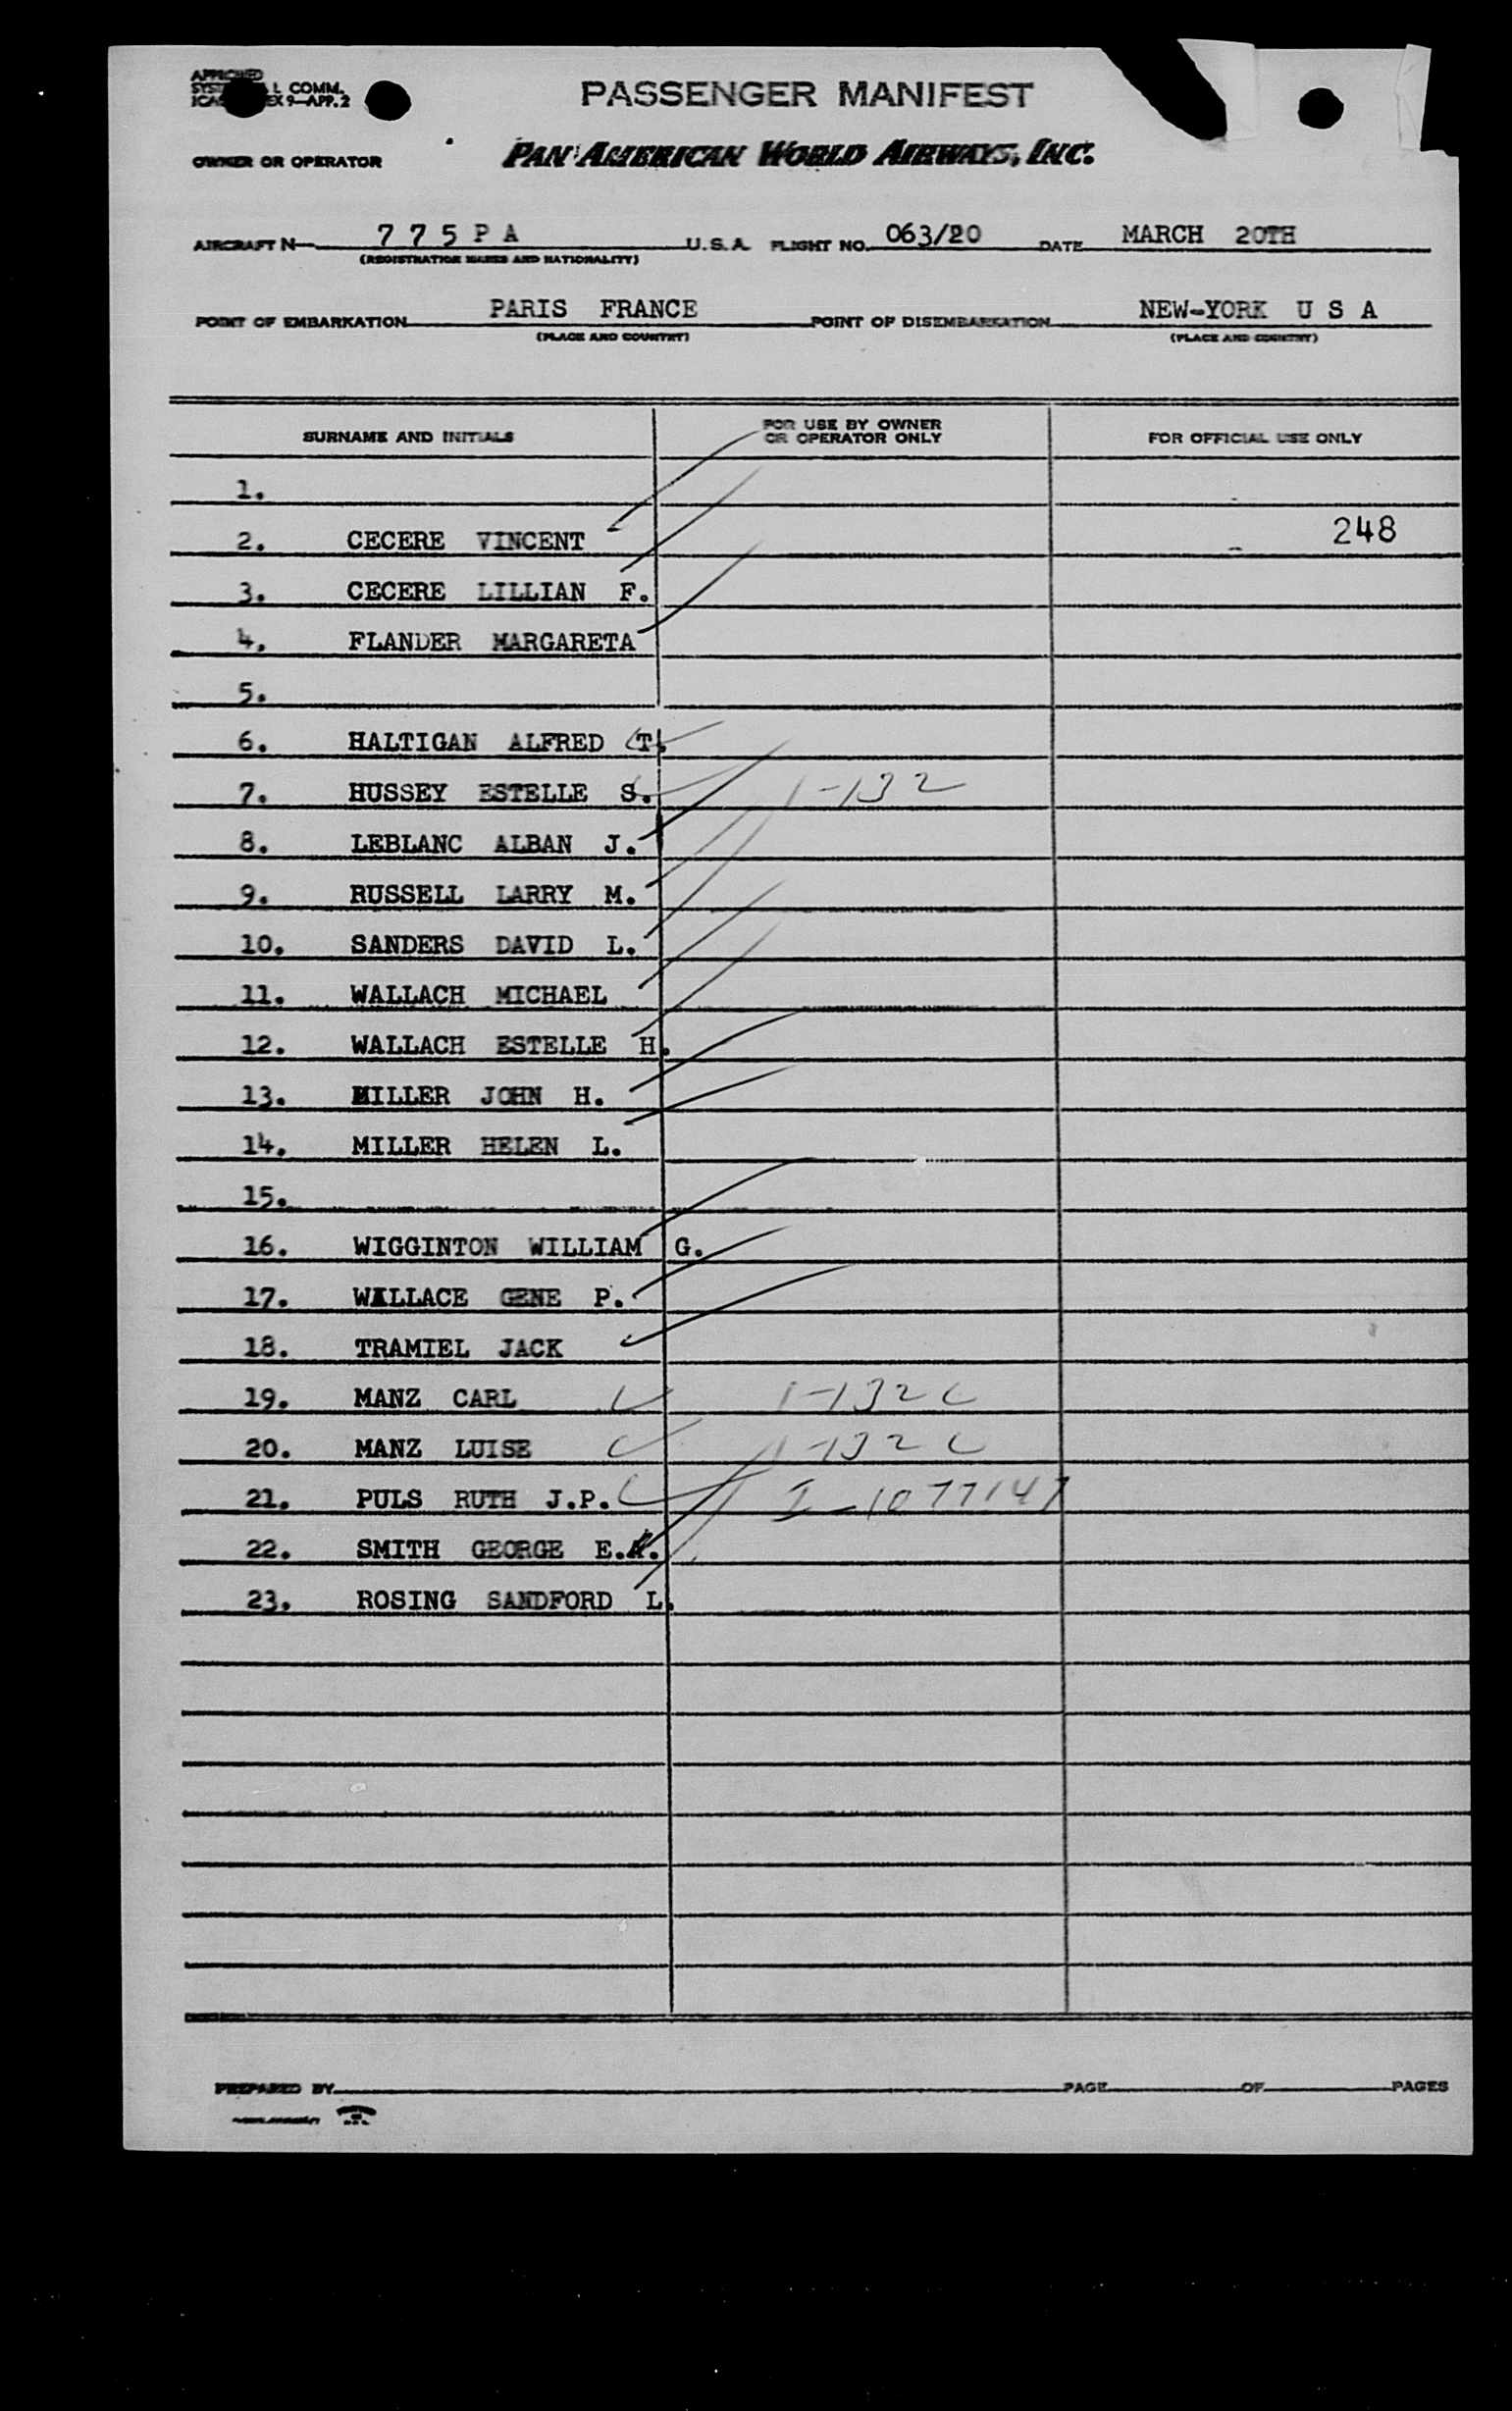 APPROVED
SYST L COMM.
ICAO EX 9-APP. 2
PASSENGER MANIFEST
OWNER OR OPERATOR PAN AMERICAN WORLD AIRWAYS, INC.
AIRCRAFT N 7 7 5 P A U.S.A. FLIGHT NO. 063/20 DATE MARCH 20TH
(REGISTRATION MARKS AND NATIONALITY)
POINT OF EMBARKATION PARIS FRANCE POINT OF DISEMBARKATION NEW-YORK U S A
(PLACE AND COUNTRY) (PLACE AND COUNTRY)
SURNAME AND INITIALS FOR USE BY OWNER OR OPERATOR ONLY FOR OFFICIAL USE ONLY
1.
2. CECERE VINCENT 248
3. CECERE LILLIAN F.
4. FLANDER MARGARETA
5.
6. HALTIGAN ALFRED T.
7. HUSSEY ESTELLE S. 1-132
8. LEBLANC ALBAN J.
9. RUSSELL LARRY M.
10. SANDERS DAVID L.
11. WALLACH MICHAEL
12. WALLACH ESTELLE H.
13. MILLER JOHN H.
14. MILLER HELEN L.
15.
16. WIGGINTON WILLIAM G.
17. WALLACE GENE P.
18. TRAMIEL JACK
19. MANZ CARL 1-132 C
20. MANZ LUISE 1-132 C
21. PULS RUTH J.P. I-1077147
22. SMITH GEORGE E.A.
23. ROSING SANDFORD L.
PREPARED BY PAGE OF PAGES